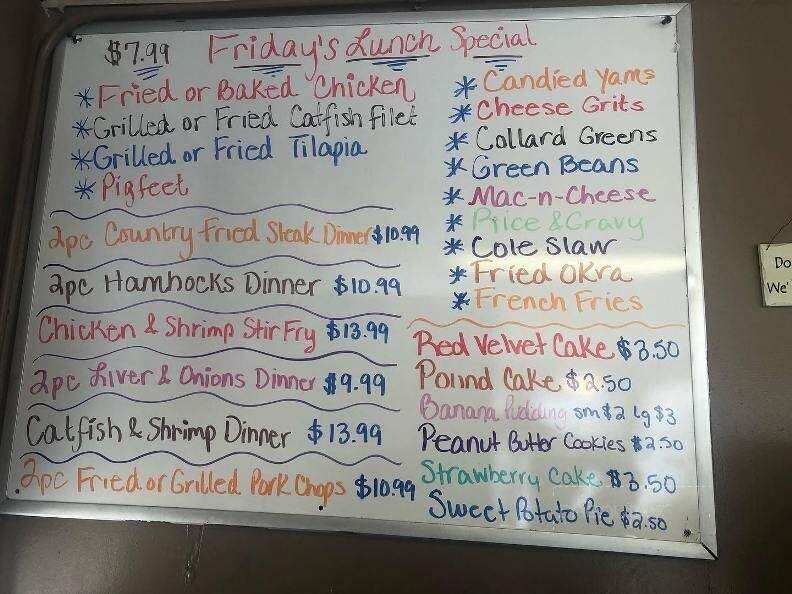 $7.99 Friday's Lunch Special
* Fried or Baked Chicken
* Grilled or Fried Catfish filet
* Grilled or Fried Tilapia
* Pigfeet
2pc Country Fried Steak Dinner $10.99
2pc Hamhocks Dinner $10.99
Chicken & Shrimp Stir Fry $13.99
2pc Liver & Onions Dinner $9.99
Catfish & Shrimp Dinner $13.99
2pc Fried or Grilled Pork Chops $10.99
* Candied Yams
* Cheese Grits
* Collard Greens
* Green Beans
* Mac-n-Cheese
* Rice & Gravy
* Cole Slaw
* Fried Okra
* French Fries
Red Velvet Cake $3.50
Pound Cake $2.50
Banana Pudding sm $2 lg $3
Peanut Butter Cookies $2.50
Strawberry Cake $3.50
Sweet Potato Pie $2.50
Do
We'